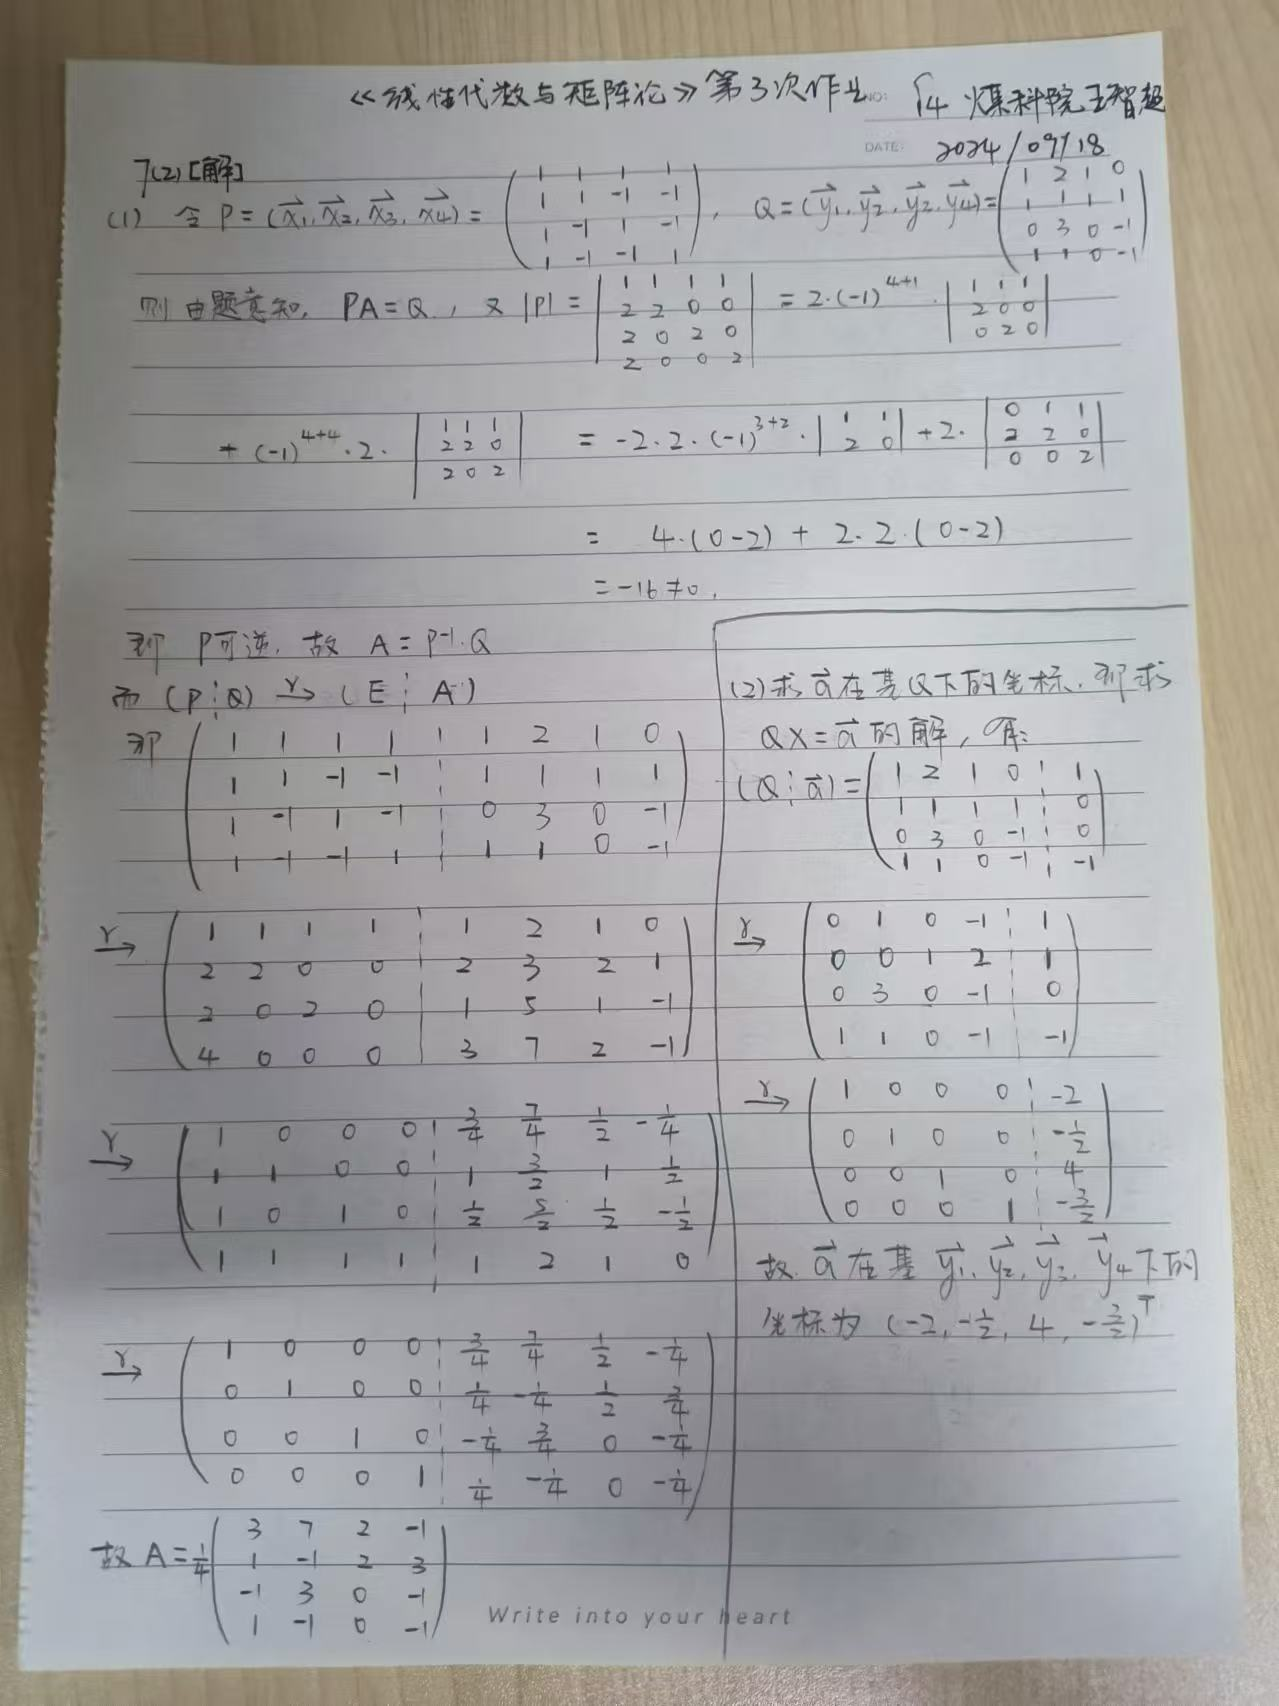 《线性代数与矩阵论》第3次作业 NO: 14 煤科院王智超
DATE: 2024/09/18
7(2)[解]
(1) 令 P=(x₁⃗,x₂⃗,x₃⃗,x₄⃗)= ( 1 1 1 1 ; 1 1 -1 -1 ; 1 -1 1 -1 ; 1 -1 -1 1 ), Q=(y₁⃗,y₂⃗,y₂⃗,y₄⃗)= ( 1 2 1 0 ; 1 1 1 1 ; 0 3 0 -1 ; 1 1 0 -1 )
则由题意知, PA=Q, 又 |P| = | 1 1 1 1 ; 2 2 0 0 ; 2 0 2 0 ; 2 0 0 2 | = 2·(-1)^{4+1}· | 1 1 1 ; 2 0 0 ; 0 2 0 |
+(-1)^{4+4}·2· | 1 1 1 ; 2 2 0 ; 2 0 2 | = -2·2·(-1)^{3+2}· | 1 1 ; 2 0 | +2· | 0 1 1 ; 2 2 0 ; 0 0 2 |
= 4·(0-2) + 2·2·(0-2)
= -16≠0,
即 P可逆, 故 A=P⁻¹·Q
而 (P¦Q) r→ (E¦A)
即 ( 1 1 1 1 ¦ 1 2 1 0
1 1 -1 -1 ¦ 1 1 1 1
1 -1 1 -1 ¦ 0 3 0 -1
1 -1 -1 1 ¦ 1 1 0 -1 )
r→ ( 1 1 1 1 ¦ 1 2 1 0
2 2 0 0 ¦ 2 3 2 1
2 0 2 0 ¦ 1 5 1 -1
4 0 0 0 ¦ 3 7 2 -1 )
r→ ( 1 0 0 0 ¦ 3/4 7/4 1/2 -1/4
1 1 0 0 ¦ 1 3/2 1 1/2
1 0 1 0 ¦ 1/2 5/2 1/2 -1/2
1 1 1 1 ¦ 1 2 1 0 )
r→ ( 1 0 0 0 ¦ 3/4 7/4 1/2 -1/4
0 1 0 0 ¦ 1/4 -1/4 1/2 3/4
0 0 1 0 ¦ -1/4 3/4 0 -1/4
0 0 0 1 ¦ 1/4 -1/4 0 -1/4 )
故 A=1/4 ( 3 7 2 -1
1 -1 2 3
-1 3 0 -1
1 -1 0 -1 )
(2) 求a⃗在基Q下的坐标, 即求
QX=a⃗的解,
(Q¦a⃗)= ( 1 2 1 0 ¦ 1
1 1 1 1 ¦ 0
0 3 0 -1 ¦ 0
1 1 0 -1 ¦ -1 )
r→ ( 0 1 0 -1 ¦ 1
0 0 1 2 ¦ 1
0 3 0 -1 ¦ 0
1 1 0 -1 ¦ -1 )
r→ ( 1 0 0 0 ¦ -2
0 1 0 0 ¦ -1/2
0 0 1 0 ¦ 4
0 0 0 1 ¦ -3/2 )
故 a⃗在基 y₁⃗,y₂⃗,y₃⃗,y₄⃗下的
坐标为 (-2,-1/2, 4, -3/2)ᵀ
Write into your heart